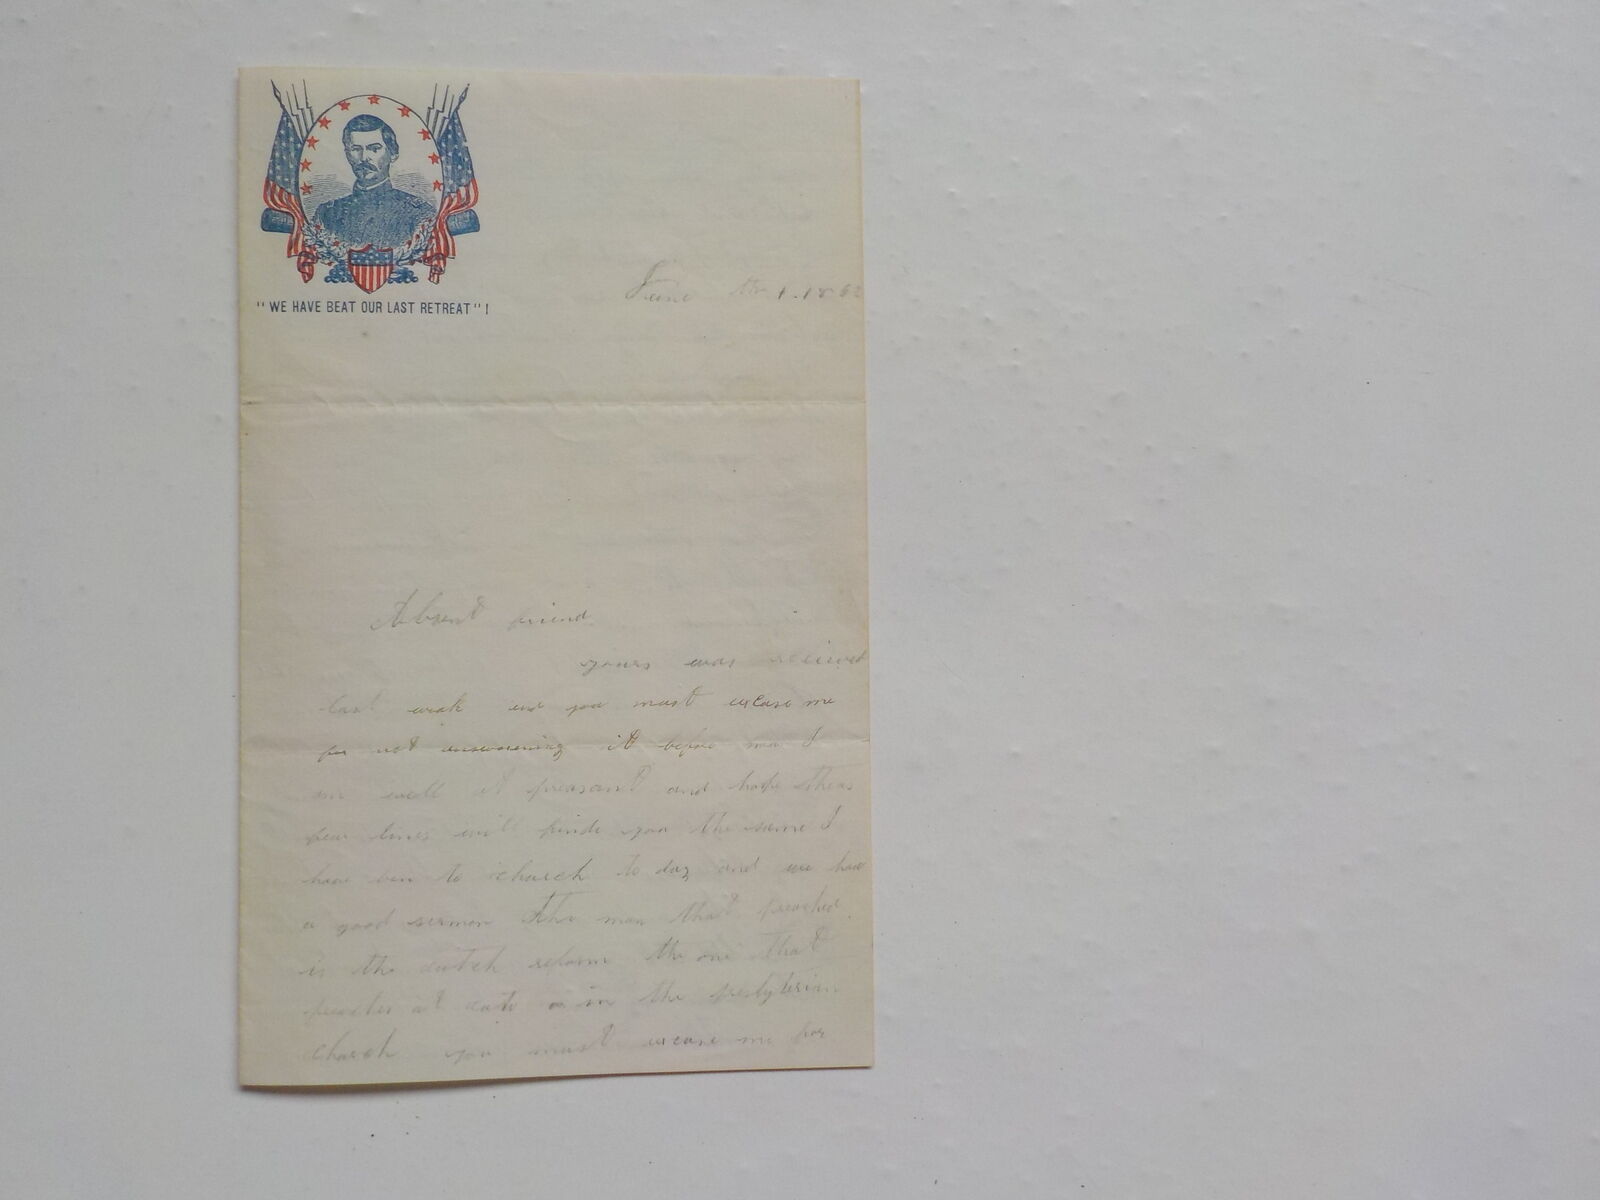 "WE HAVE BEAT OUR LAST RETREAT"!
June the 1. 1862
Absent friend
yours was recieved
last weak and you must excase me
for not answering it before now I
am well at preasant and hope theas
few lines will finde you the same I
have ben to church to day and we had
a good sermon the man that preached
is the dutch reform the one that
preaches at in the presbyterian
church you must excase me for